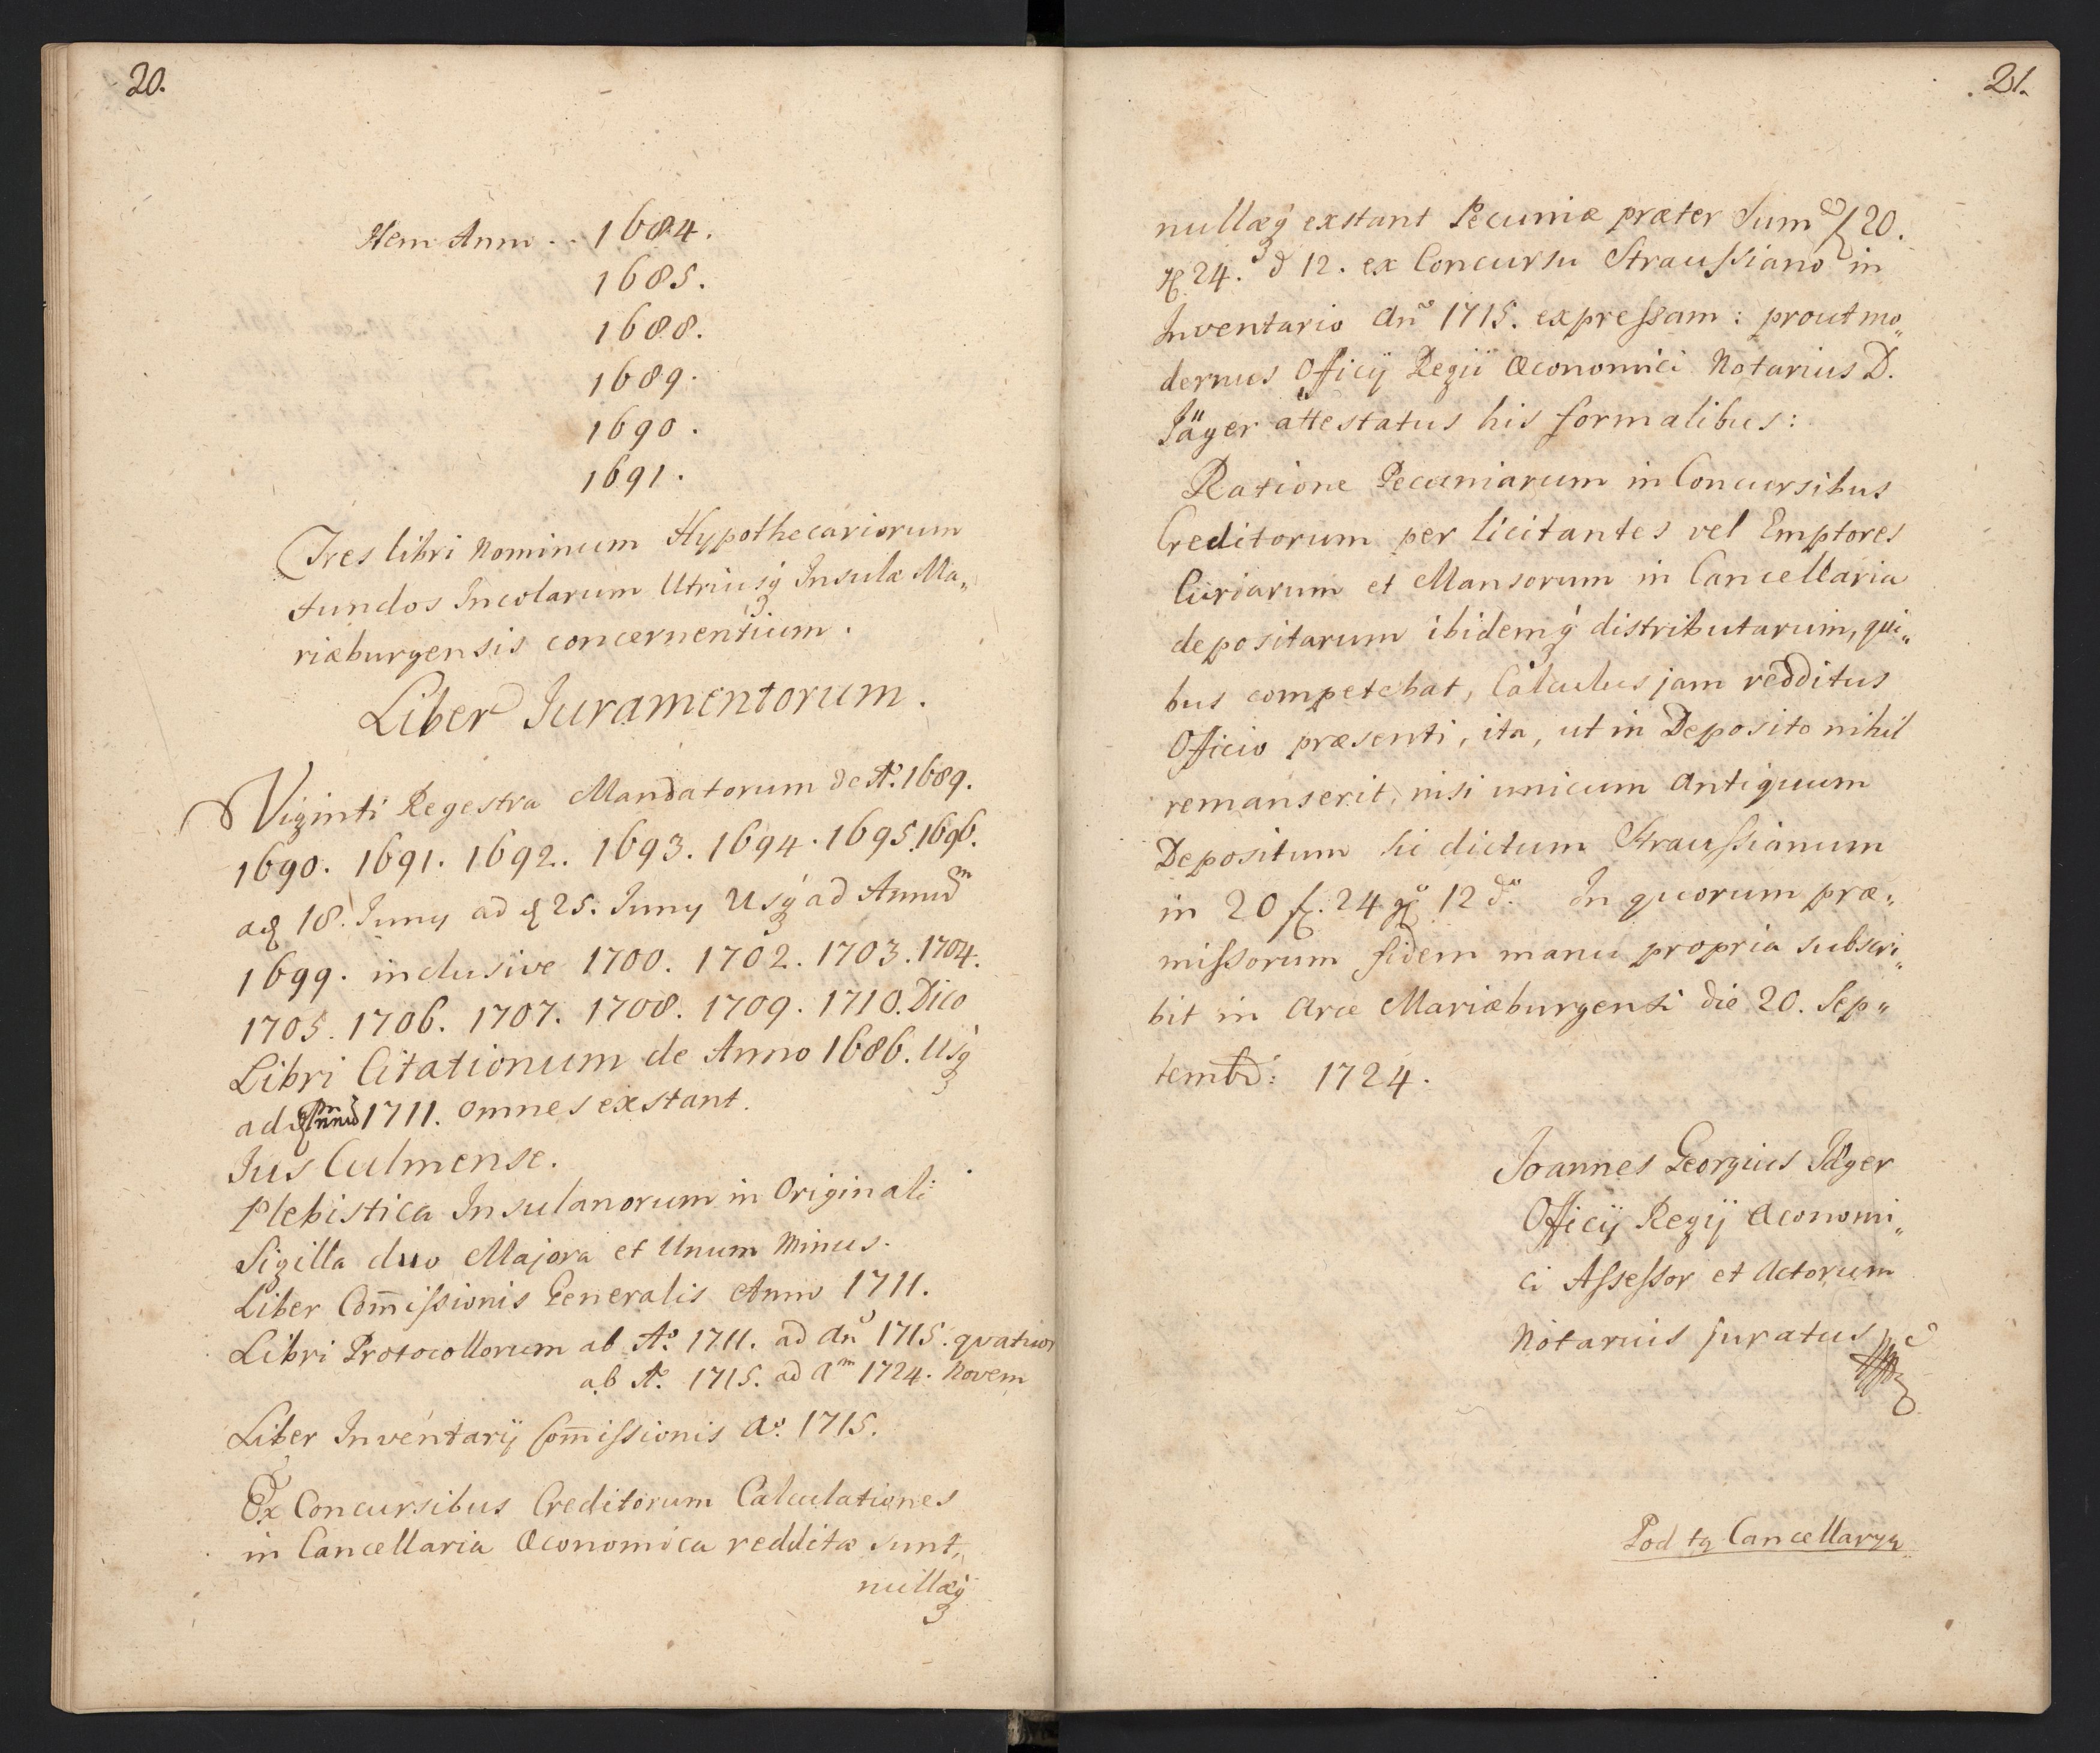 20.
Item Anno .. 1684.
1685.
1688.
1689.
1690.
1691.
Tres libri Nominum Hypothecariorum
fundos Incolarum Utriusq Insulæ Ma„
riæburgensis concernentium.
Liber Juramentorum.
Viginti Regestra Mandatorum de Aº. 1689.
1690. 1691. 1692. 1693. 1694. 1695. 1696.
a 18. Juny ad 25. Juny Usq ad Annum
1699. inclusive 1700. 1702. 1703. 1704.
1705. 1706. 1707. 1708. 1709. 1710. Dico
Libri Citationum de Anno 1686. Usq
ad Annum 1711. omnes exstant.
Jus Culmense.
Plebistica Insulanorum in Originali.
Sigilla duo Majora et Unum Minus.
Liber Com̄issionis Generalis Anno 1711.
Libri Protocollorum ab Aº. 1711. ad Añ 1715. quatuor
ab Aº. 1715. ad Aᵐ 1724. Novem
Liber Inventarij Com̄issionis Aº. 1715.
Ex Concursibus Creditorum Calculationes
in Cancellaria Œconomica redditæ sunt,
nullæq
21.
nullæq exstant Pecuniæ præter Sum̄ f 20.
gr 24. ₰ 12. ex Concursu Straussiano in
Inventario Añ 1715. expressam: prout mo„
dernus Officij Regii Œconomici Notarius D.
Jäger attestatus his formalibus:
Ratione Pecuniarum in Concursibus
Creditorum per licitantes vel Emptores
Curiarum et Mansorum in Cancellaria
depositarum ibidemq distributarum, qui„
bus competebat, Calculus jam redditus
Officio præsenti, ita, ut in Deposito nihil
remanserit, nisi unicum Antiquum
Depositum sic dictum Straussianum
in 20 f. 24 gr 12 ₰. In quorum præ„
missorum fidem manu propria subscri„
bit in Arce Mariæburgensi die 20. Sep„
temb: 1724.
Joannes Georgius Jäger
Officij Regij Œconomi„
ci Assessor et Actorum
Notarius juratus
Pod tą Cancellaryą